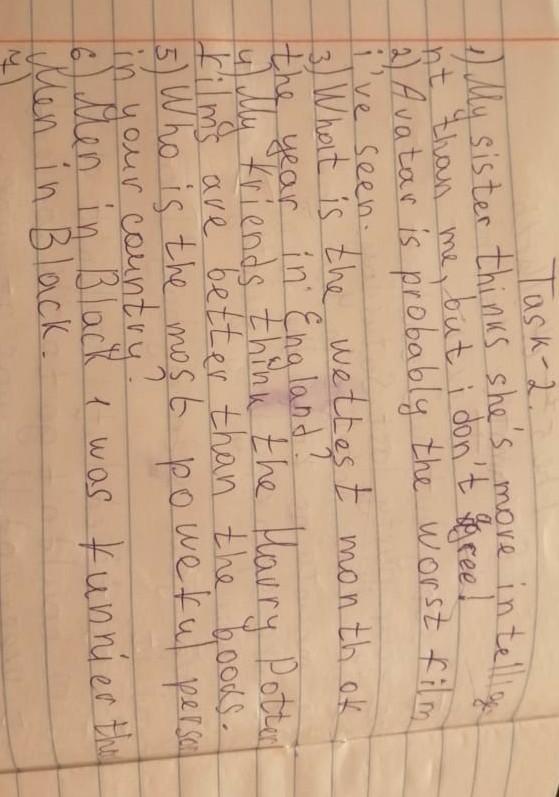 Task-2.
1) My sister thinks she's more intellige
nt than me, but i don't agree!
2) Avatar is probably the worst film
i've seen.
3) What is the wettest month of
the year in England?
4) My friends think the Harry Potter
films are better than the books.
5) Who is the most poweful perso
in your country?
6) Men in Black 1 was funnier tha
Men in Black.
7)